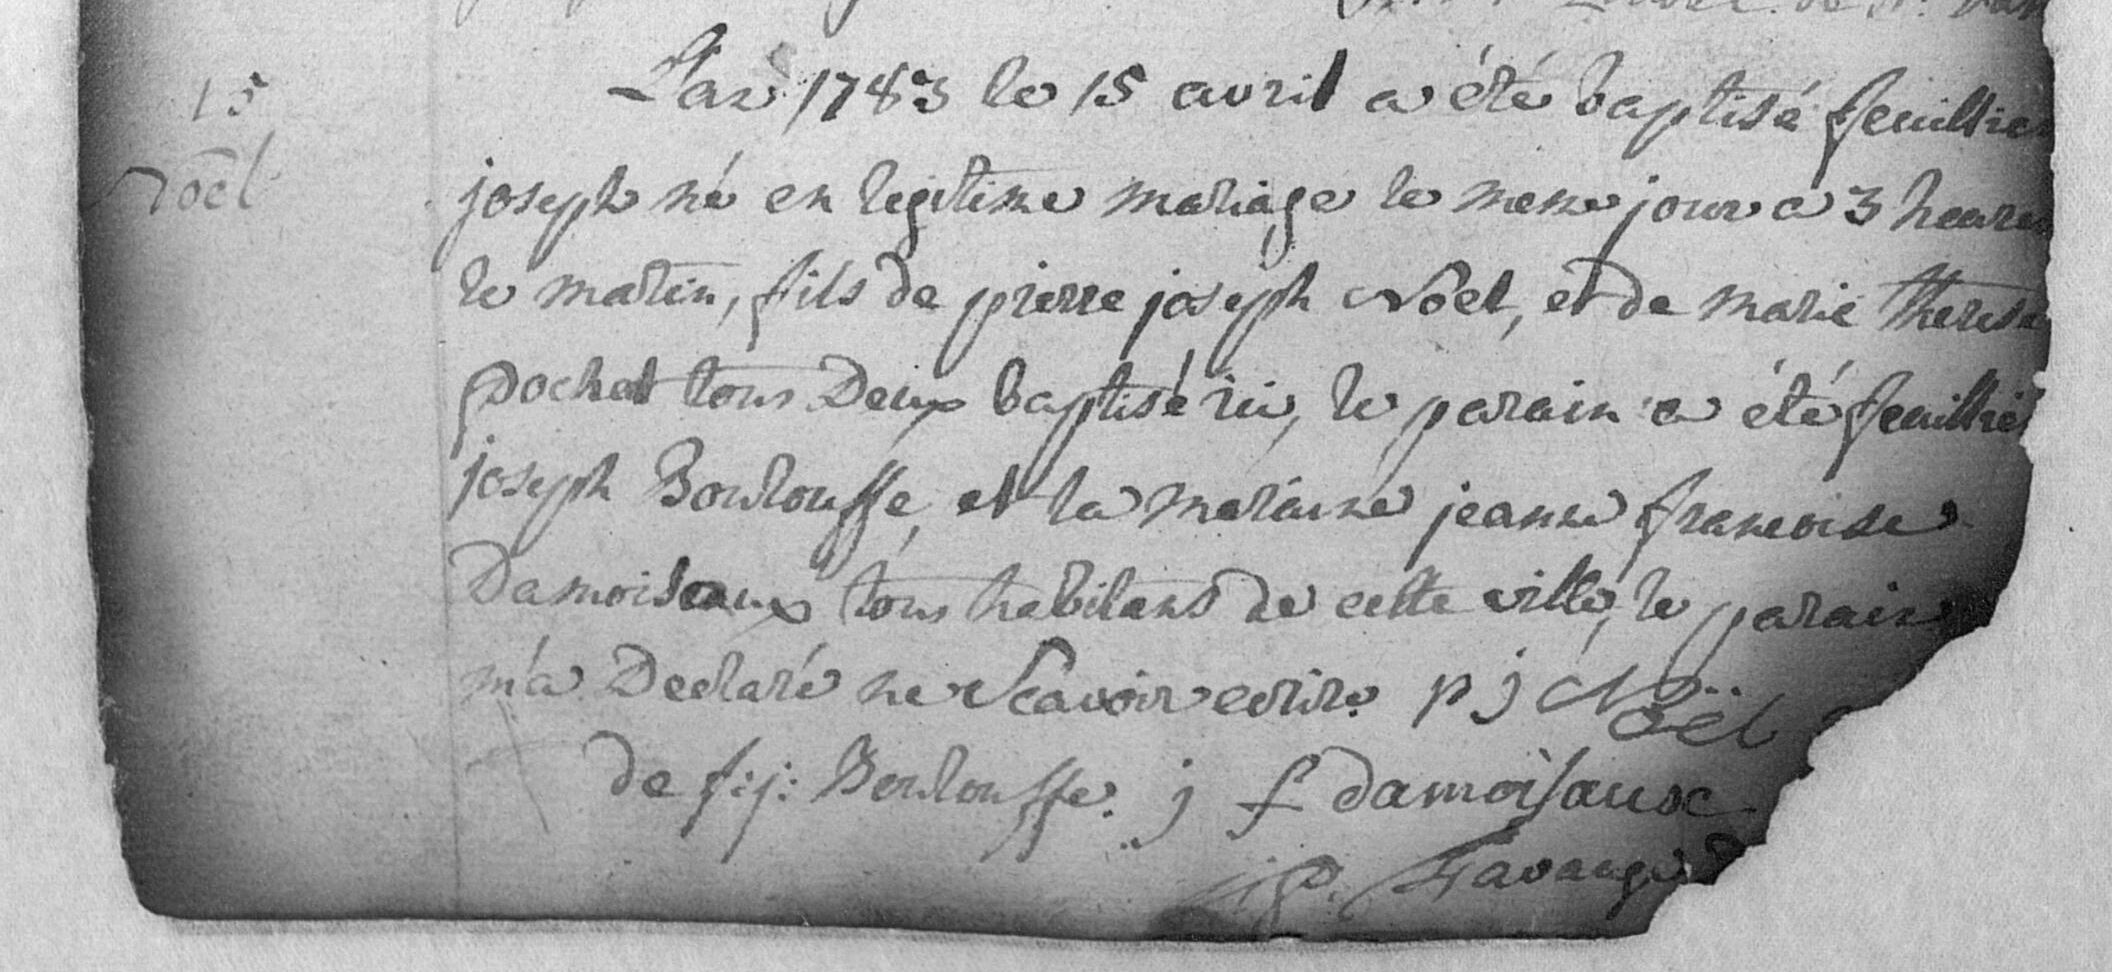 15
Noël
L'an 1783 le 15 avril a été baptisé feuillien
joseph né en legitime mariage le mene jour a 3 heures
le matin, fils de pierre joseph Noël, et de marie therese
Pochet tous Deux baptisé ici, le parain a été feuillien
joseph Boulouffe, et la maraine jeanne francoise
Damoiseaux tous habitans de cette ville, le parain
m'a Declaré ne Scavoir ecrire p j Noël
de f: j: Boulouffe. j f damoisaux